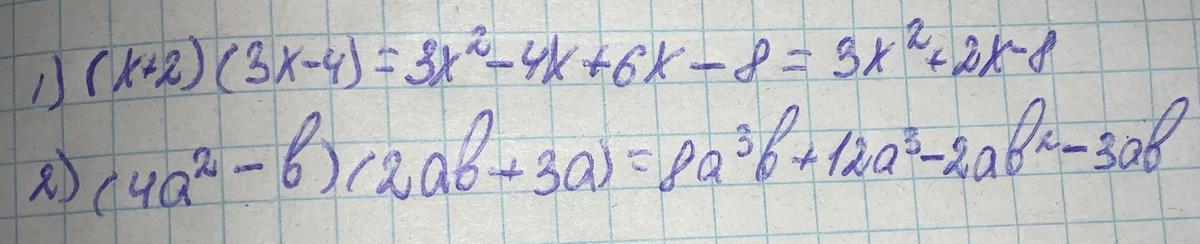 1) (x+2)(3x-4)=3x²-4x+6x-8=3x²+2x-8
2) (4a²-b)(2ab+3a)=8a³b+12a³-2ab²-3ab